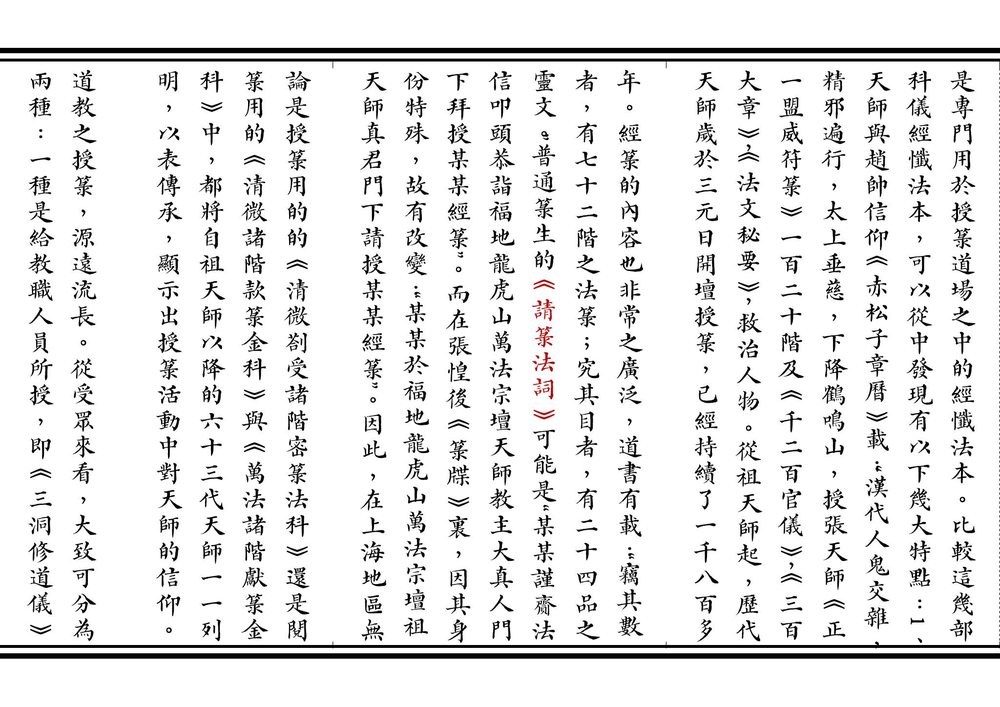 是專門用於授箓道場之中的經懺法本。比較這幾部
科儀經懺法本，可以從中發現有以下幾大特點：1、
天師與趙帥信仰《赤松子章曆》載“漢代人鬼交雜，
精邪遍行，太上垂慈，下降鶴鳴山，授張天師《正
一盟威符箓》一百二十階及《千二百官儀》，《三百
大章》，《法文秘要》，救治人物。從祖天師起，歷代
天師歲於三元日開壇授箓，已經持續了一千八百多
年。經箓的內容也非常之廣泛，道書有載：“竊其數
者，有七十二階之法箓；究其目者，有二十四品之
靈文。”普通箓生的《請箓法詞》可能是“某某謹齋法
信叩頭恭詣福地龍虎山萬法宗壇天師教主大真人門
下拜授某某經箓”。而在張惶後《箓牒》裏，因其身
份特殊，故有改變：“某某於福地龍虎山萬法宗壇祖
天師真君門下請授某某經箓”。因此，在上海地區無
論是授箓用的的《清微剳受諸階密箓法科》還是閱
箓用的《清微諸階款箓金科》與《萬法諸階獻箓金
科》中，都將自祖天師以降的六十三代天師一一列
明，以表傳承，顯示出授箓活動中對天師的信仰。
道教之授箓，源遠流長。從受眾來看，大致可分為
兩種：一種是給教職人員所授，即《三洞修道儀》